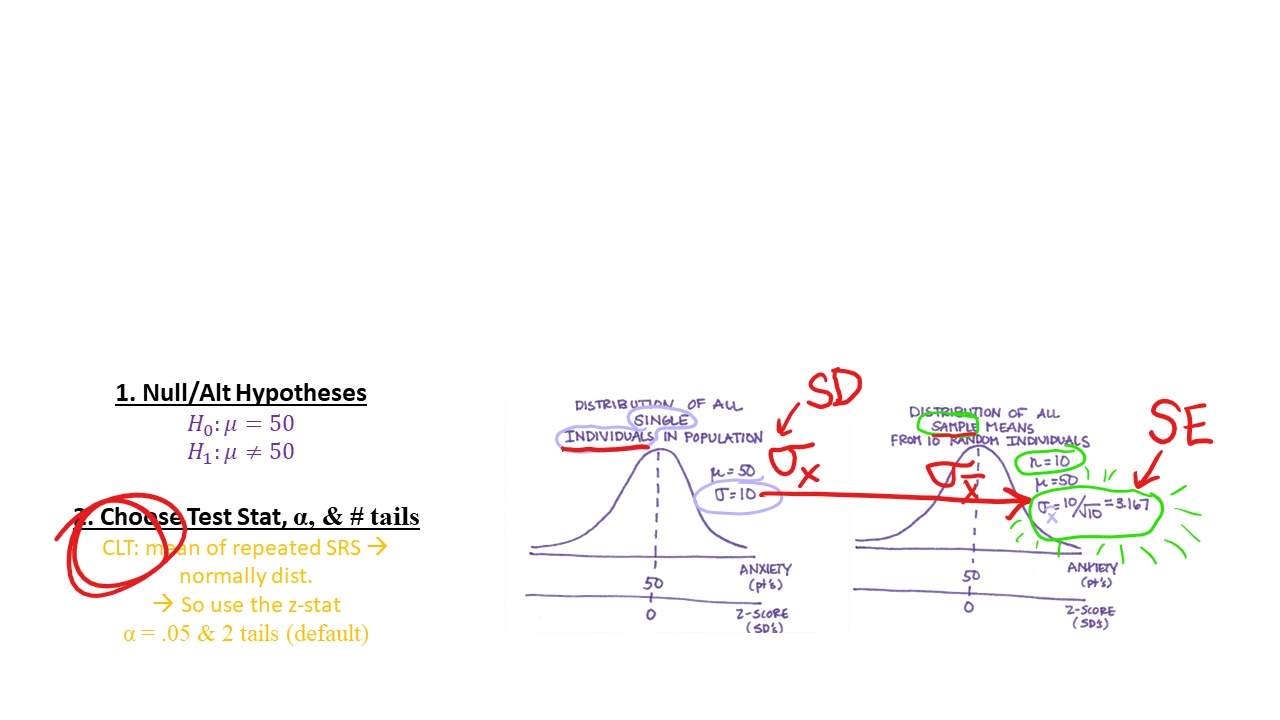 1. Null/Alt Hypotheses
H₀: μ = 50
H₁: μ ≠ 50
2. Choose Test Stat, α, & # tails
CLT: mean of repeated SRS →
normally dist.
→ So use the z-stat
α = .05 & 2 tails (default)
SD
DISTRIBUTION OF ALL
SINGLE
INDIVIDUALS IN POPULATION
σₓ
μ=50
σ=10
50
ANXIETY
(pt's)
0
Z-SCORE
(SD's)
SE
DISTRIBUTION OF ALL
SAMPLE MEANS
FROM 10 RANDOM INDIVIDUALS
n=10
σx̄
μ=50
σx̄=10/√10=3.167
50
ANXIETY
(pt's)
0
Z-SCORE
(SDs)